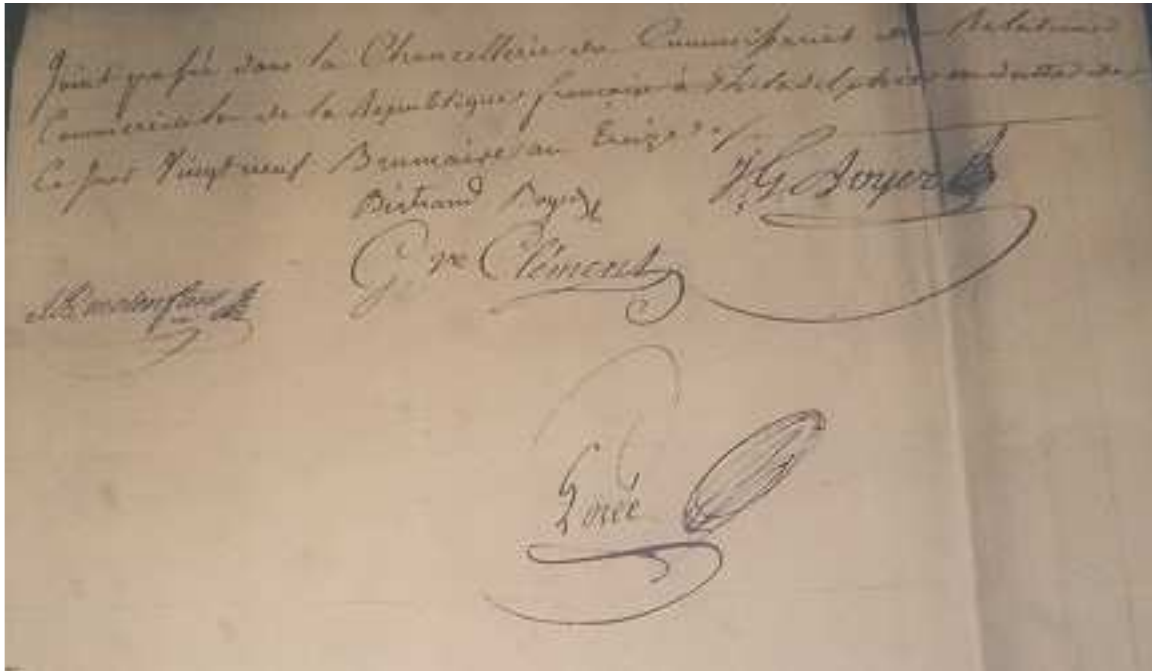 dans la Chancellerie du Commissariat des Relations
Commerciales de la République française à Philadelphie
Ce jour Vingt neuf Brumaire an treize
J. G. Boyer
Bertrand Boyer
G. re Clément
Zorée